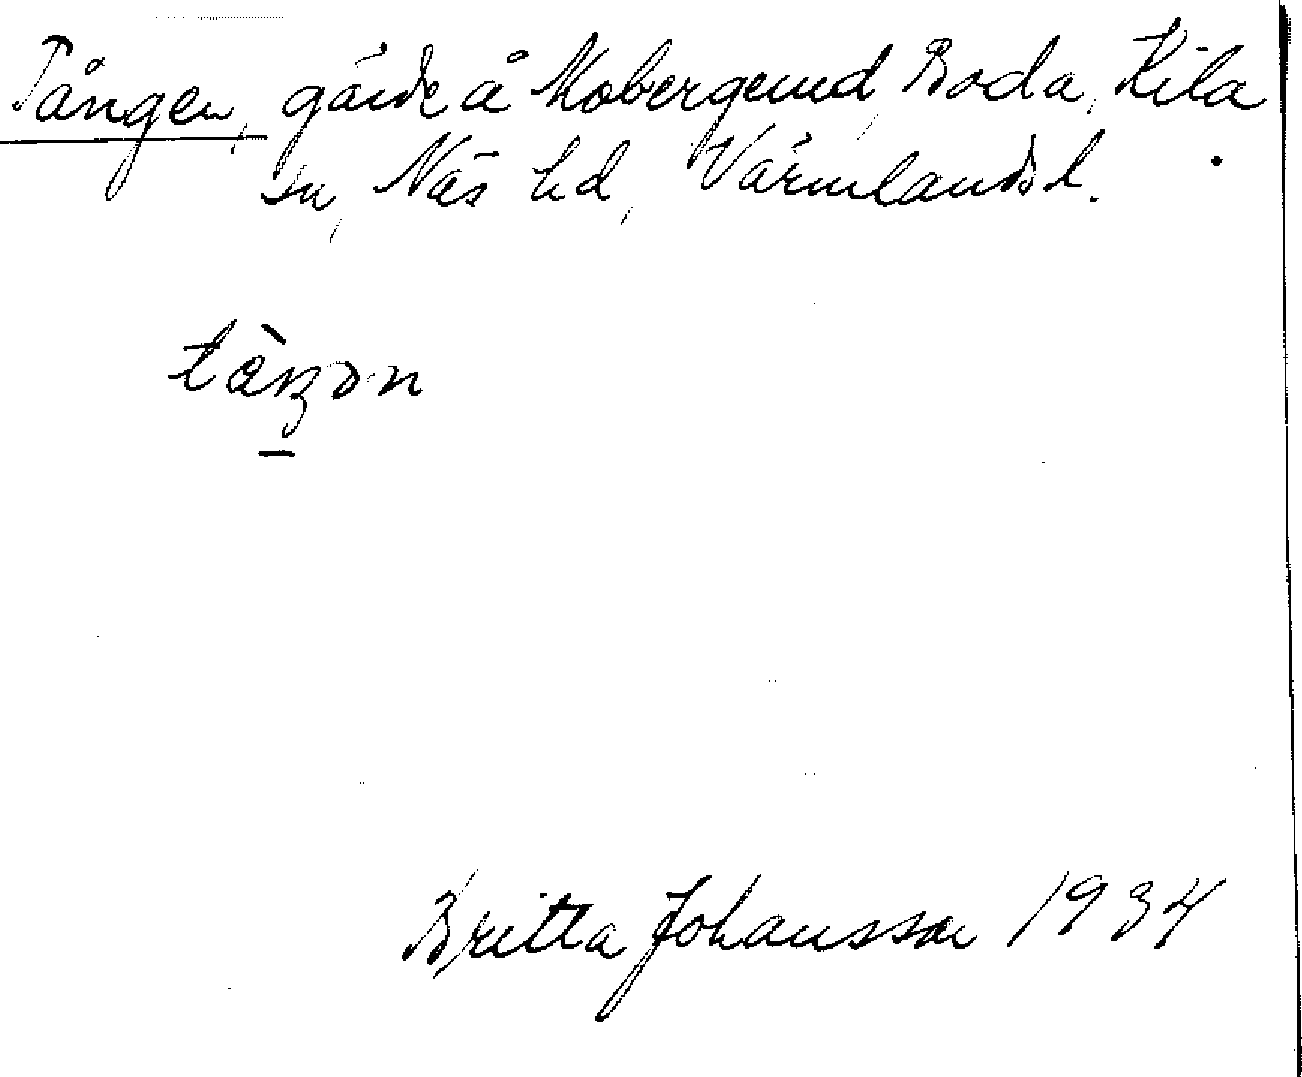 Tången, gärde å Mobergerud, Boda, Kila
sn, Näs hd, Värmlands l.
Britta Johansson 1934